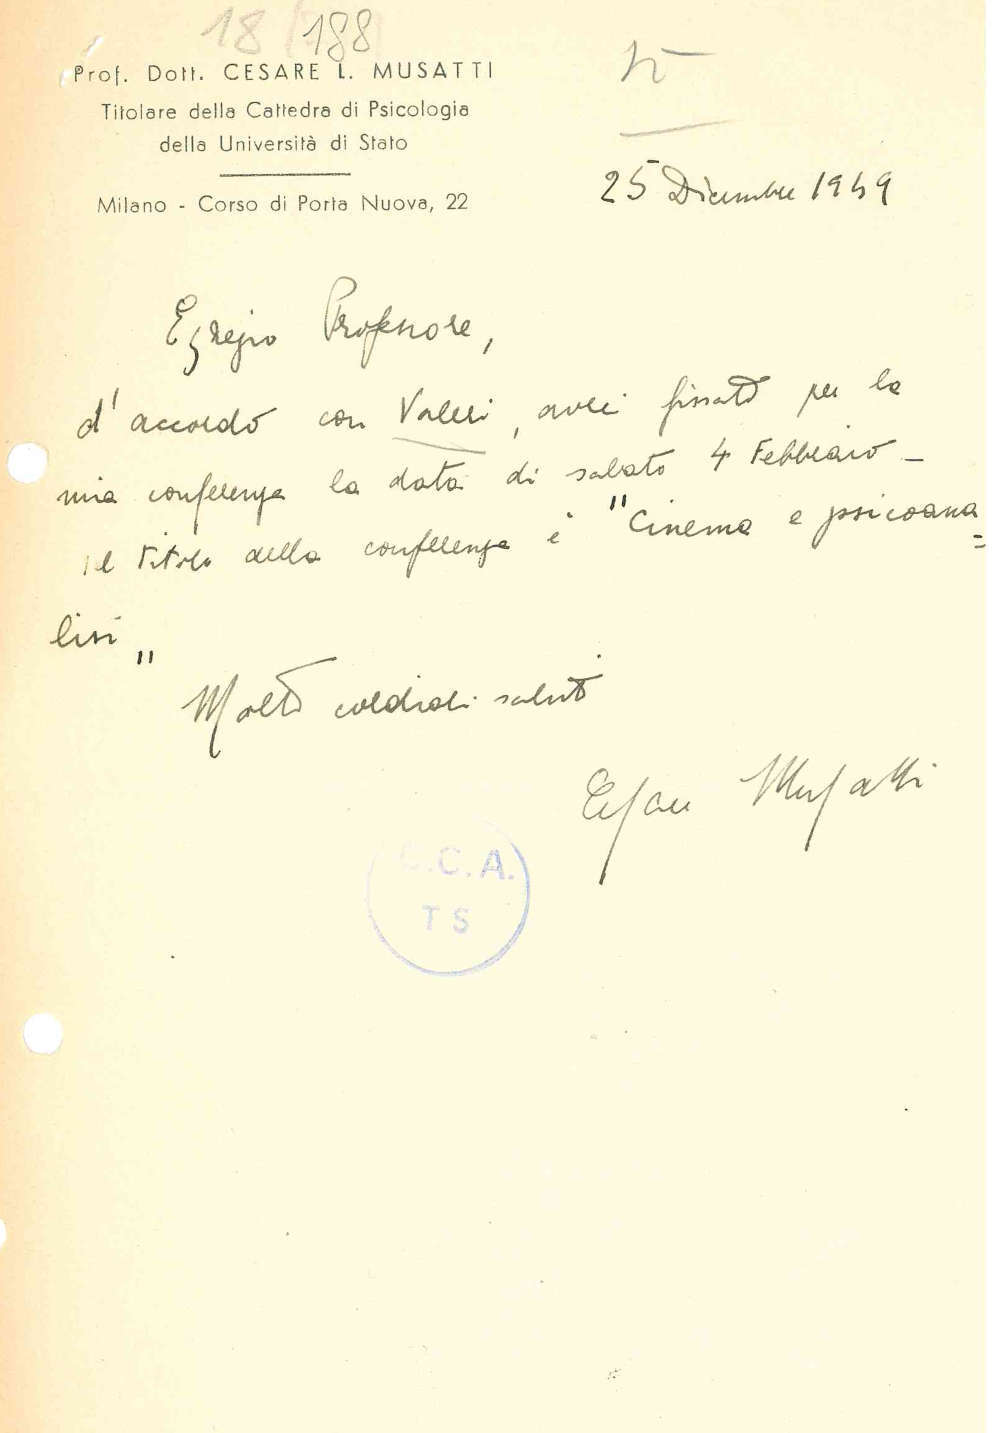 188
Prof. Dott. CESARE L. MUSATTI
Titolare della Cattedra di Psicologia
della Università di Stato
Milano - Corso di Porta Nuova, 22
25 Dicembre 1949
Egregio Professore,
d'accordo con Valeri, avrei fissato per la
mia conferenza la data di sabato 4 Febbraio -
il titolo della conferenza è "Cinema e psicoana=
lisi"
Molti cordiali saluti
Cesare Musatti
C.C.A.
TS